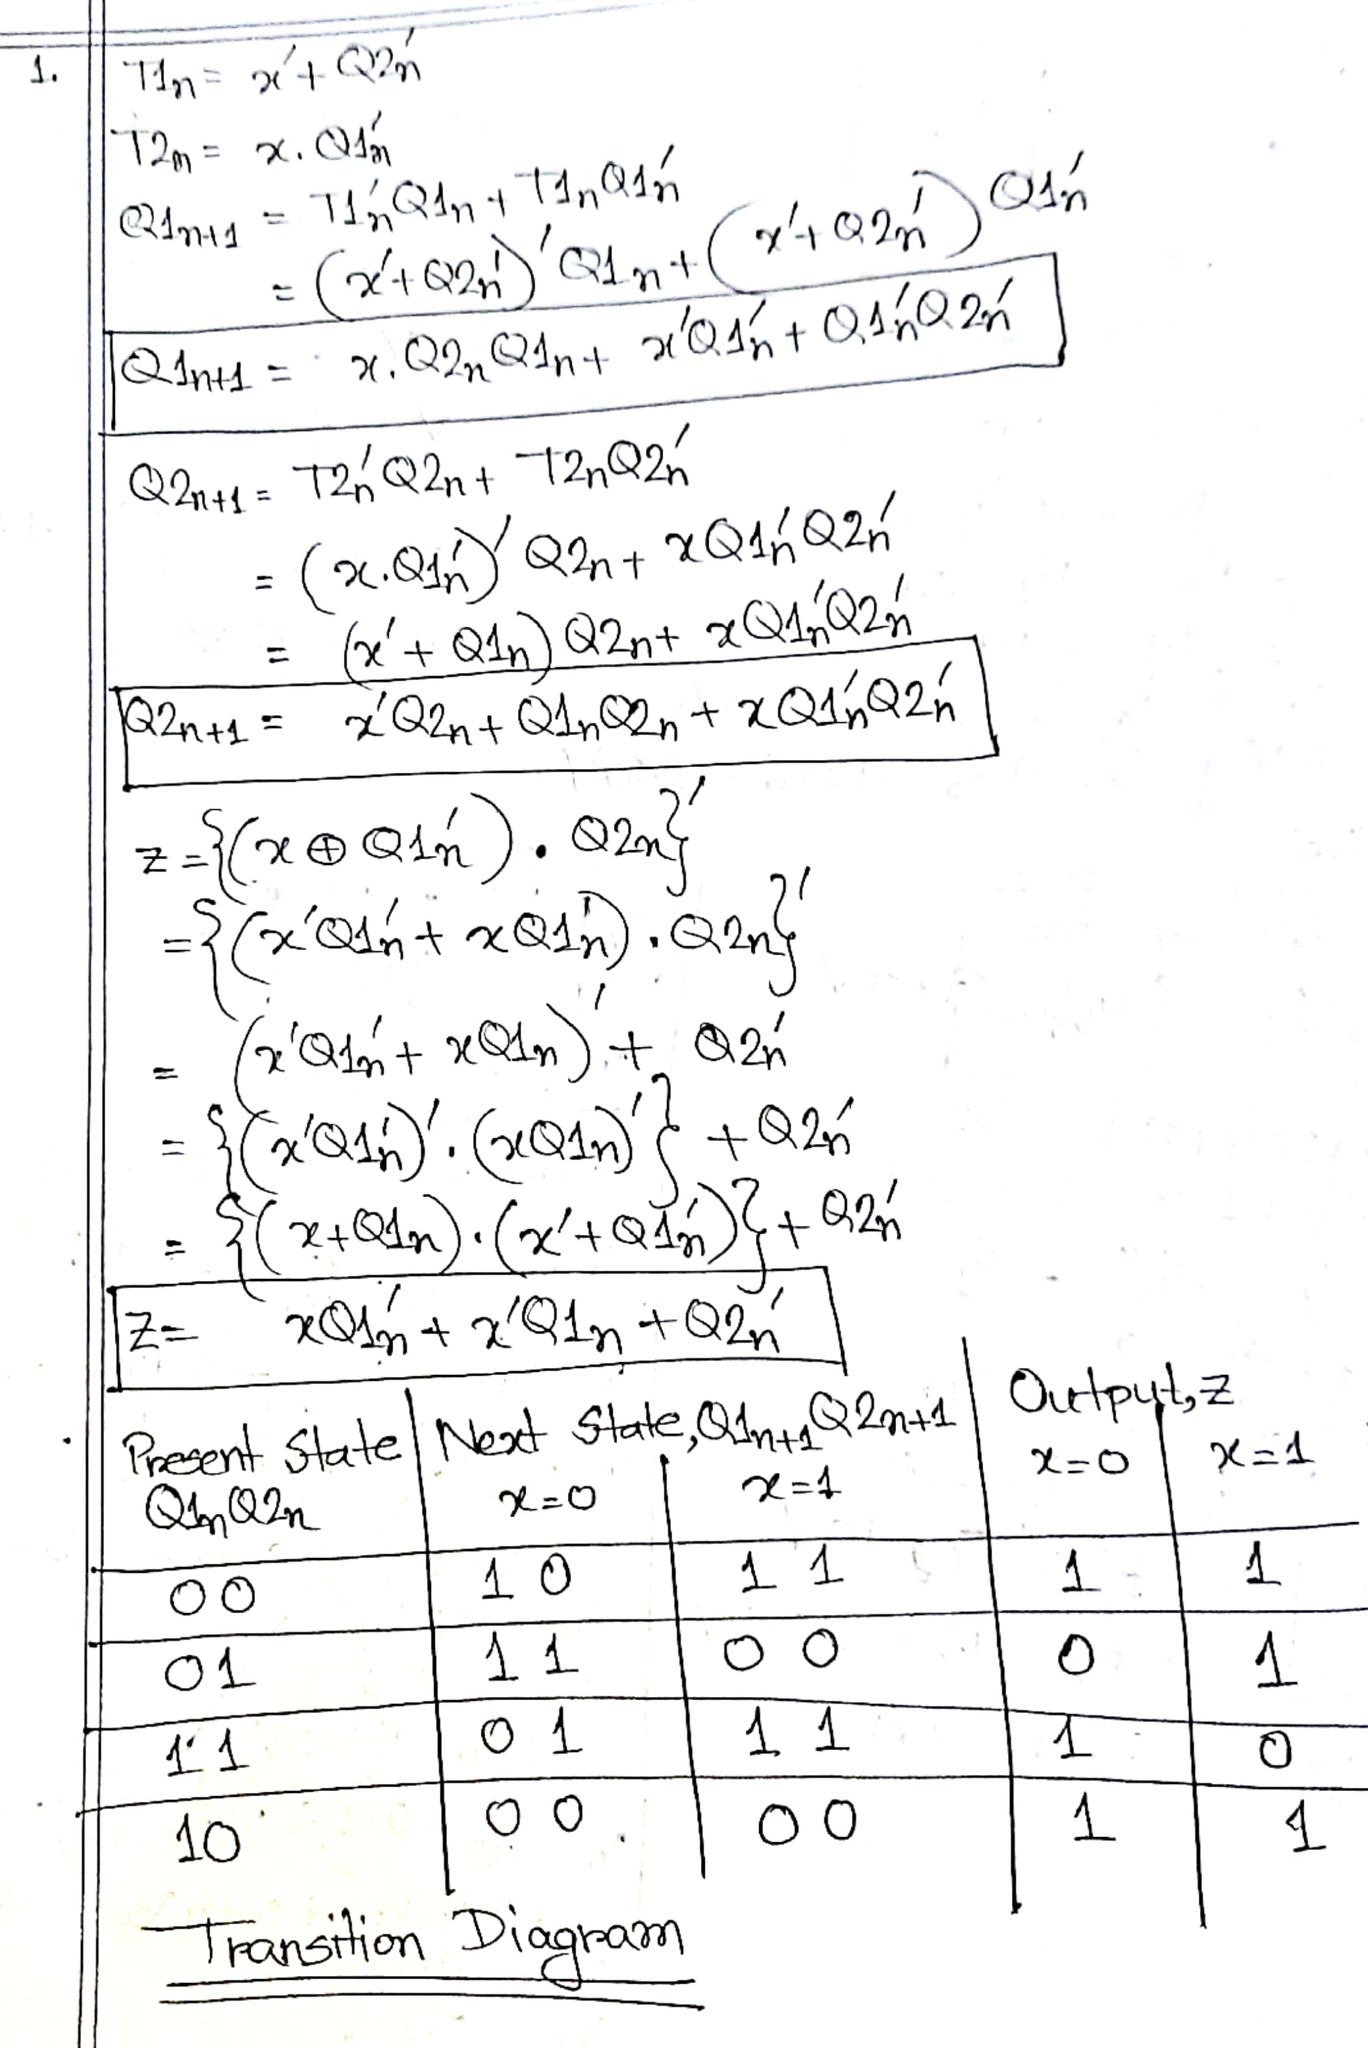 1. T1n = x' + Q2n'
T2n = x. Q1n'
Q1n+1 = T1n' Q1n + T1n Q1n'
= (x' + Q2n')' Q1n + (x' + Q2n') Q1n'
Q1n+1 = x. Q2n Q1n + x'Q1n' + Q1n'Q2n'
Q2n+1 = T2n' Q2n + T2n Q2n'
= (x.Q1n')' Q2n + xQ1n' Q2n'
= (x' + Q1n) Q2n + xQ1n'Q2n'
Q2n+1 = x'Q2n + Q1nQ2n + xQ1n'Q2n'
z = {(x ⊕ Q1n') . Q2n}'
= {(x'Q1n' + xQ1n') . Q2n}'
= (x'Q1n' + xQ1n)' + Q2n'
= {(x'Q1n')' . (xQ1n)'} + Q2n'
= {(x+Q1n) . (x' + Q1n')} + Q2n'
Z = xQ1n' + x'Q1n + Q2n'
Present State Next State, Q1n+1 Q2n+1 Output, z
Q1nQ2n x=0 x=1 x=0 x=1
00 1 0 1 1 1 1
01 1 1 0 0 0 1
11 0 1 1 1 1 0
10 0 0 0 0 1 1
Transition Diagram